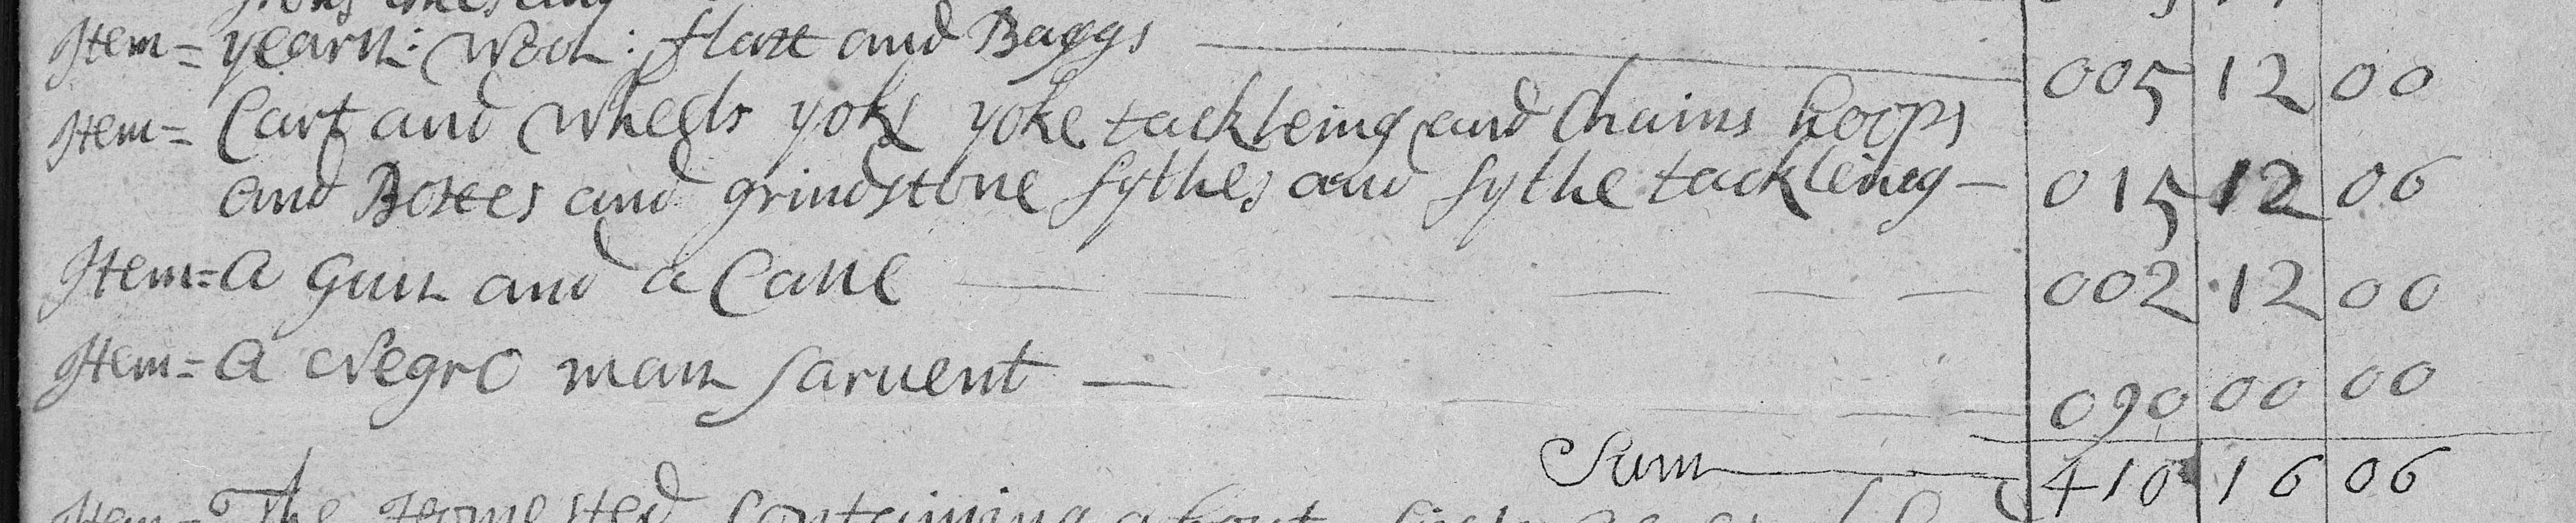 Item = yearn: Wooll: flax and Baggs 005 12 00
Item = Cart and Wheels yoks yoke tackleing and Chains hoops
and Boxes and grindstone sythes and sythe tackleing — 015 12 06
Item = a Gun and a Cane 002 12 00
Item = a Negro man sarvent — 090 00 00
Sum 410 16 06
Item = The Homested Containing about